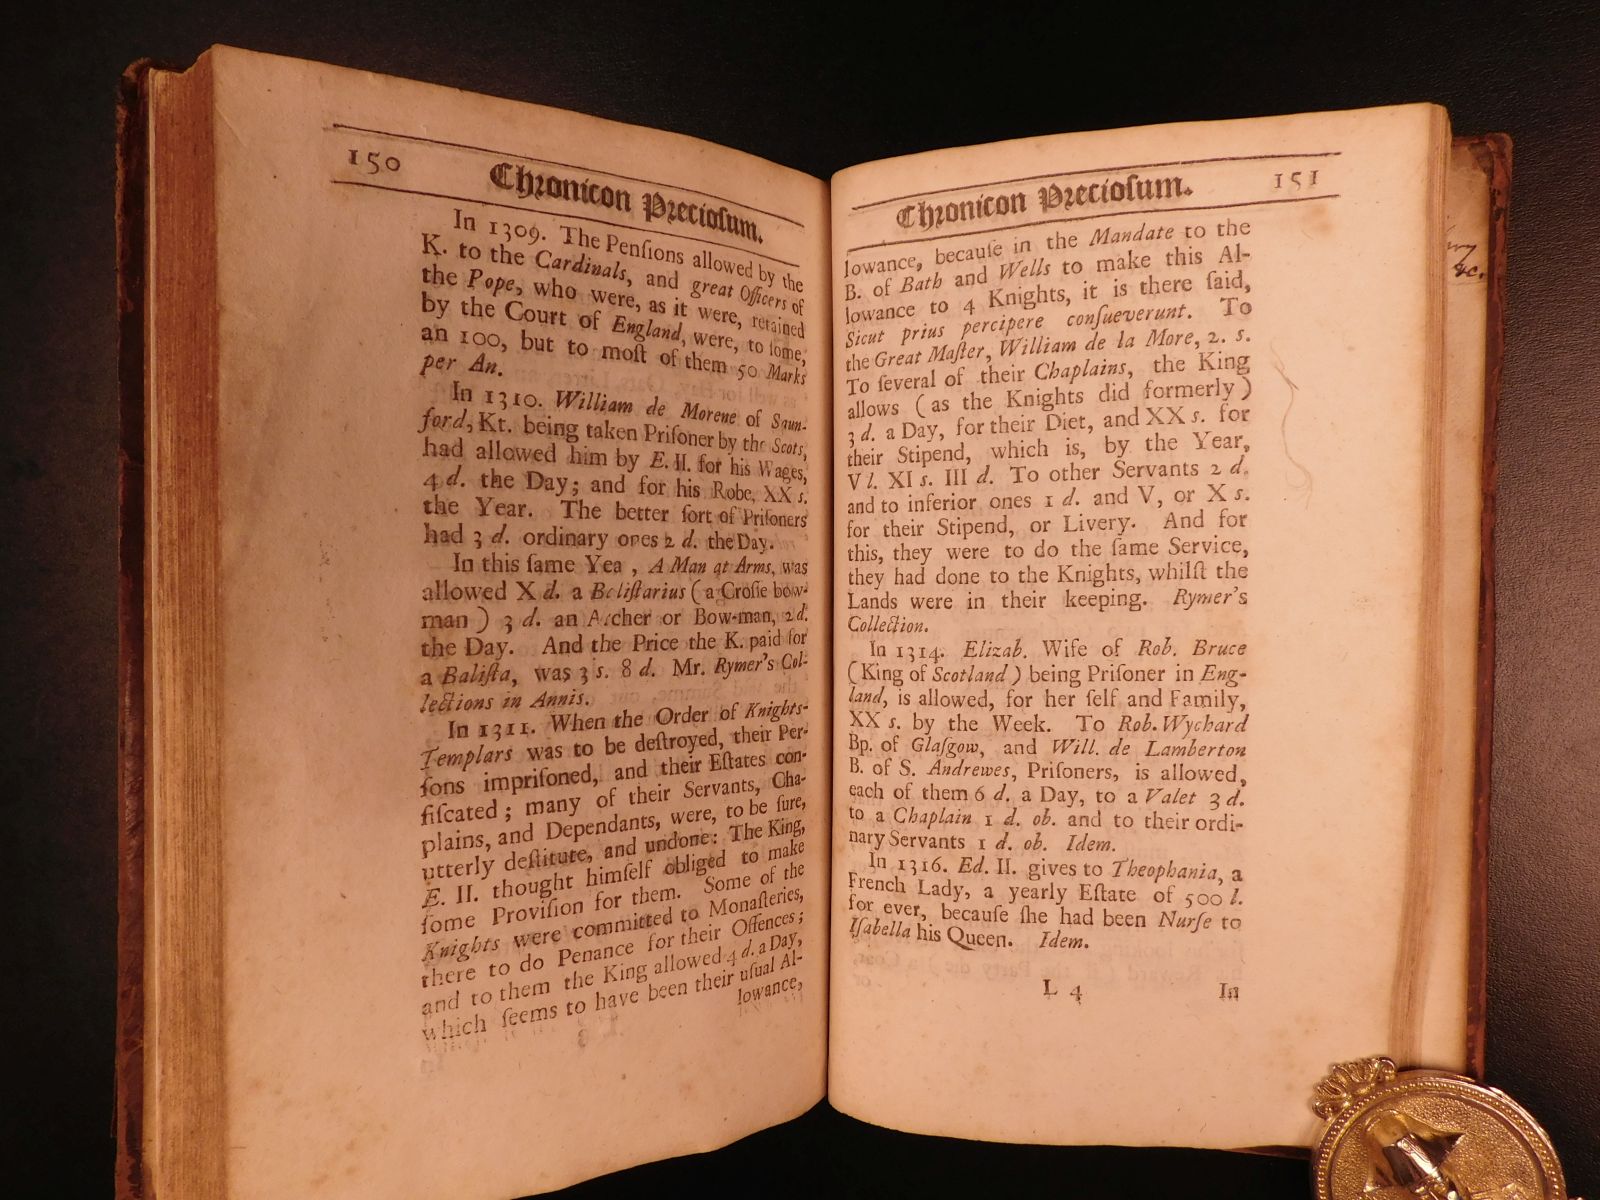 150
Chronicon Preciosum.
In 1309. The Penſions allowed by the
K. to the Cardinals, and great Officers of
the Pope, who were, as it were, retained
by the Court of England, were, to ſome,
an 100, but to moſt of them 50 Marks
per An.
In 1310. William de Morene of Saun-
ford, Kt. being taken Priſoner by the Scots,
had allowed him by E. II. for his Wages,
4 d. the Day; and for his Robe, XX s.
the Year. The better ſort of Priſoners
had 3 d. ordinary ones 2 d. the Day.
In this ſame Yea , A Man at Arms, was
allowed X d. a Baliſtarius ( a Croſſe bow-
man ) 3 d. an Archer or Bow-man, 2 d.
the Day. And the Price the K. paid for
a Baliſta, was 3 s. 8 d. Mr. Rymer's Col-
lections in Annis.
In 1311. When the Order of Knights-
Templars was to be deſtroyed, their Per-
ſons impriſoned, and their Eſtates con-
fiſcated; many of their Servants, Cha-
plains, and Dependants, were, to be ſure,
utterly deſtitute, and undone: The King,
E. II. thought himſelf obliged to make
ſome Proviſion for them. Some of the
Knights were committed to Monaſteries,
there to do Penance for their Offences;
and to them the King allowed 4 d. a Day,
which ſeems to have been their uſual Al-
lowance,
Chronicon Preciosum.
151
lowance, becauſe in the Mandate to the
B. of Bath and Wells to make this Al-
lowance to 4 Knights, it is there ſaid,
Sicut prius percipere conſueverunt. To
the Great Maſter, William de la More, 2. s.
To ſeveral of their Chaplains, the King
allows ( as the Knights did formerly )
3 d. a Day, for their Diet, and XX s. for
their Stipend, which is, by the Year,
V l. XI s. III d. To other Servants 2 d.
and to inferior ones 1 d. and V, or X s.
for their Stipend, or Livery. And for
this, they were to do the ſame Service,
they had done to the Knights, whilſt the
Lands were in their keeping. Rymer's
Collection.
In 1314. Elizab. Wife of Rob. Bruce
(King of Scotland) being Priſoner in Eng-
land, is allowed, for her ſelf and Family,
XX s. by the Week. To Rob. Wychard
Bp. of Glaſgow, and Will. de Lamberton
B. of S. Andrewes, Priſoners, is allowed,
each of them 6 d. a Day, to a Valet 3 d.
to a Chaplain 1 d. ob. and to their ordi-
nary Servants 1 d. ob. Idem.
In 1316. Ed. II. gives to Theophania, a
French Lady, a yearly Eſtate of 500 l.
for ever, becauſe ſhe had been Nurſe to
Iſabella his Queen. Idem.
L 4
In
&c.